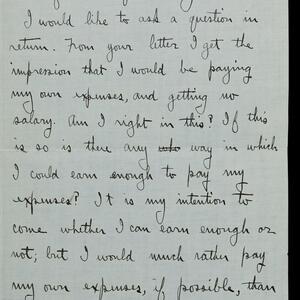 I would like to ask a question in
return. From your letter I get the
impression that I would be paying
my own expenses, and getting no
salary. Am I right in this? If this
is so is there any way in which
I could earn enough to pay my
expenses? It is my intention to
come whether I can earn enough or
not; but I would much rather pay
my own expenses, if possible, than